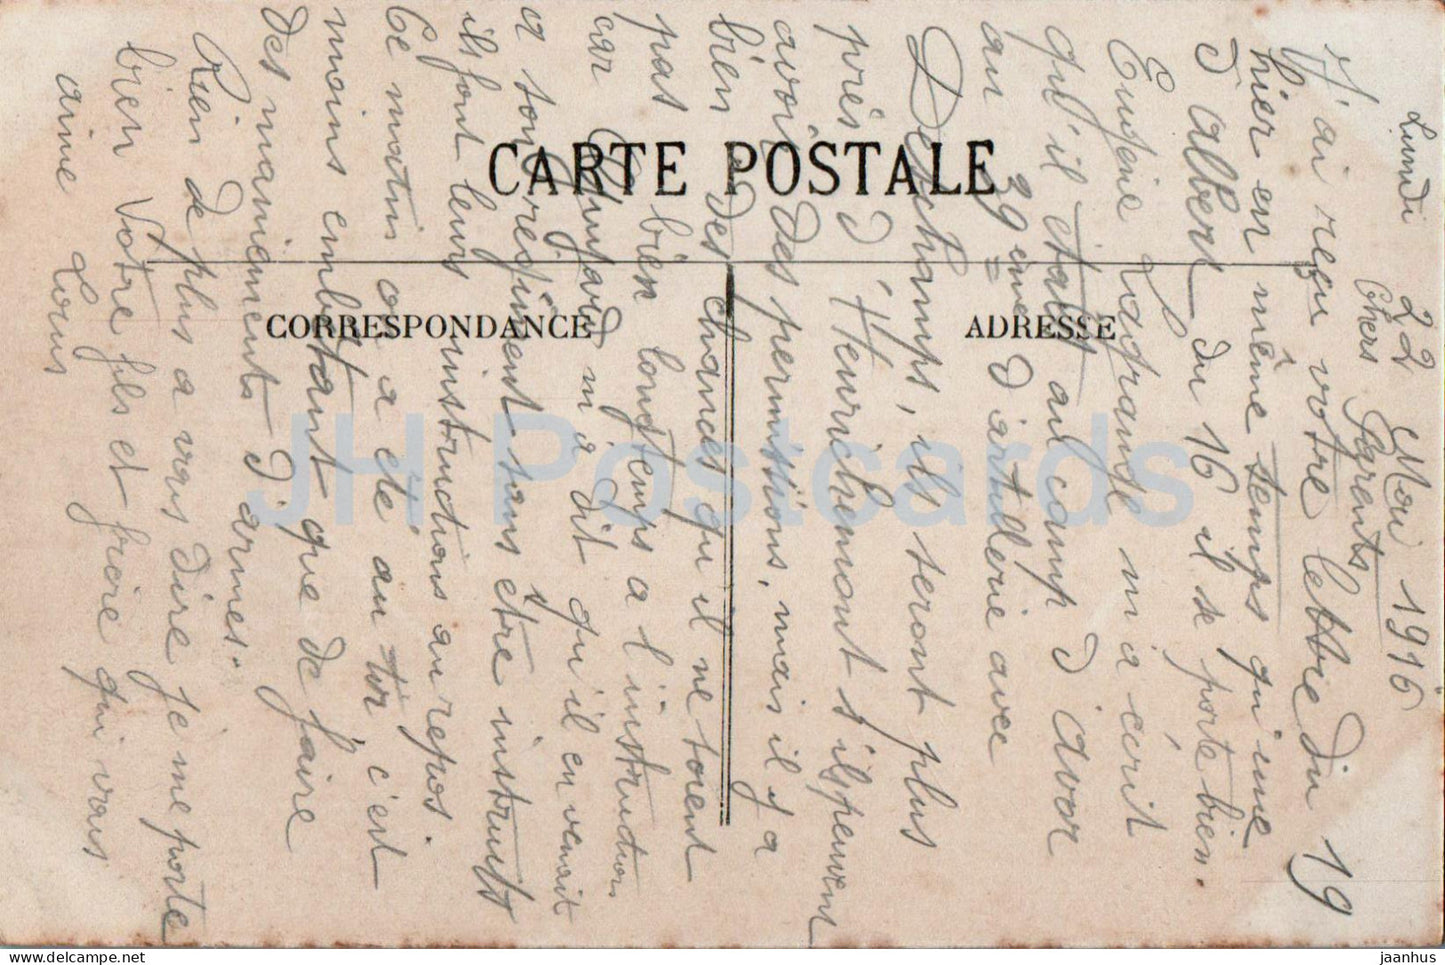 CARTE POSTALE
CORRESPONDANCE
ADRESSE
Lundi 22 Mai 1916
Chers Parents
J'ai reçu votre lettre du 19
hier en même temps qu'une
d'Albert du 16 il se porte bien.
Eugène Lagrange m'a écrit
qu'il était au camp d'Avor
au 39eme d'artillerie avec
Deschamps, ils seront plus
près d'Heurichemont s'ils peuvent
avoir des permissions, mais il y a
bien des chances qu'il ne soient
pas bien longtemps a l'instruction
car m'a dit qu'il en venait
a son régiment sans être instruits
ils font leurs instructions au repos.
Ce matin on a été au tir c'est
moins embêtant que de faire
des maniements d'armes.
Rien de plus a vous dire je me porte
bien Votre fils et frère qui vous
aime Louis
JH Postcards
jaanhus